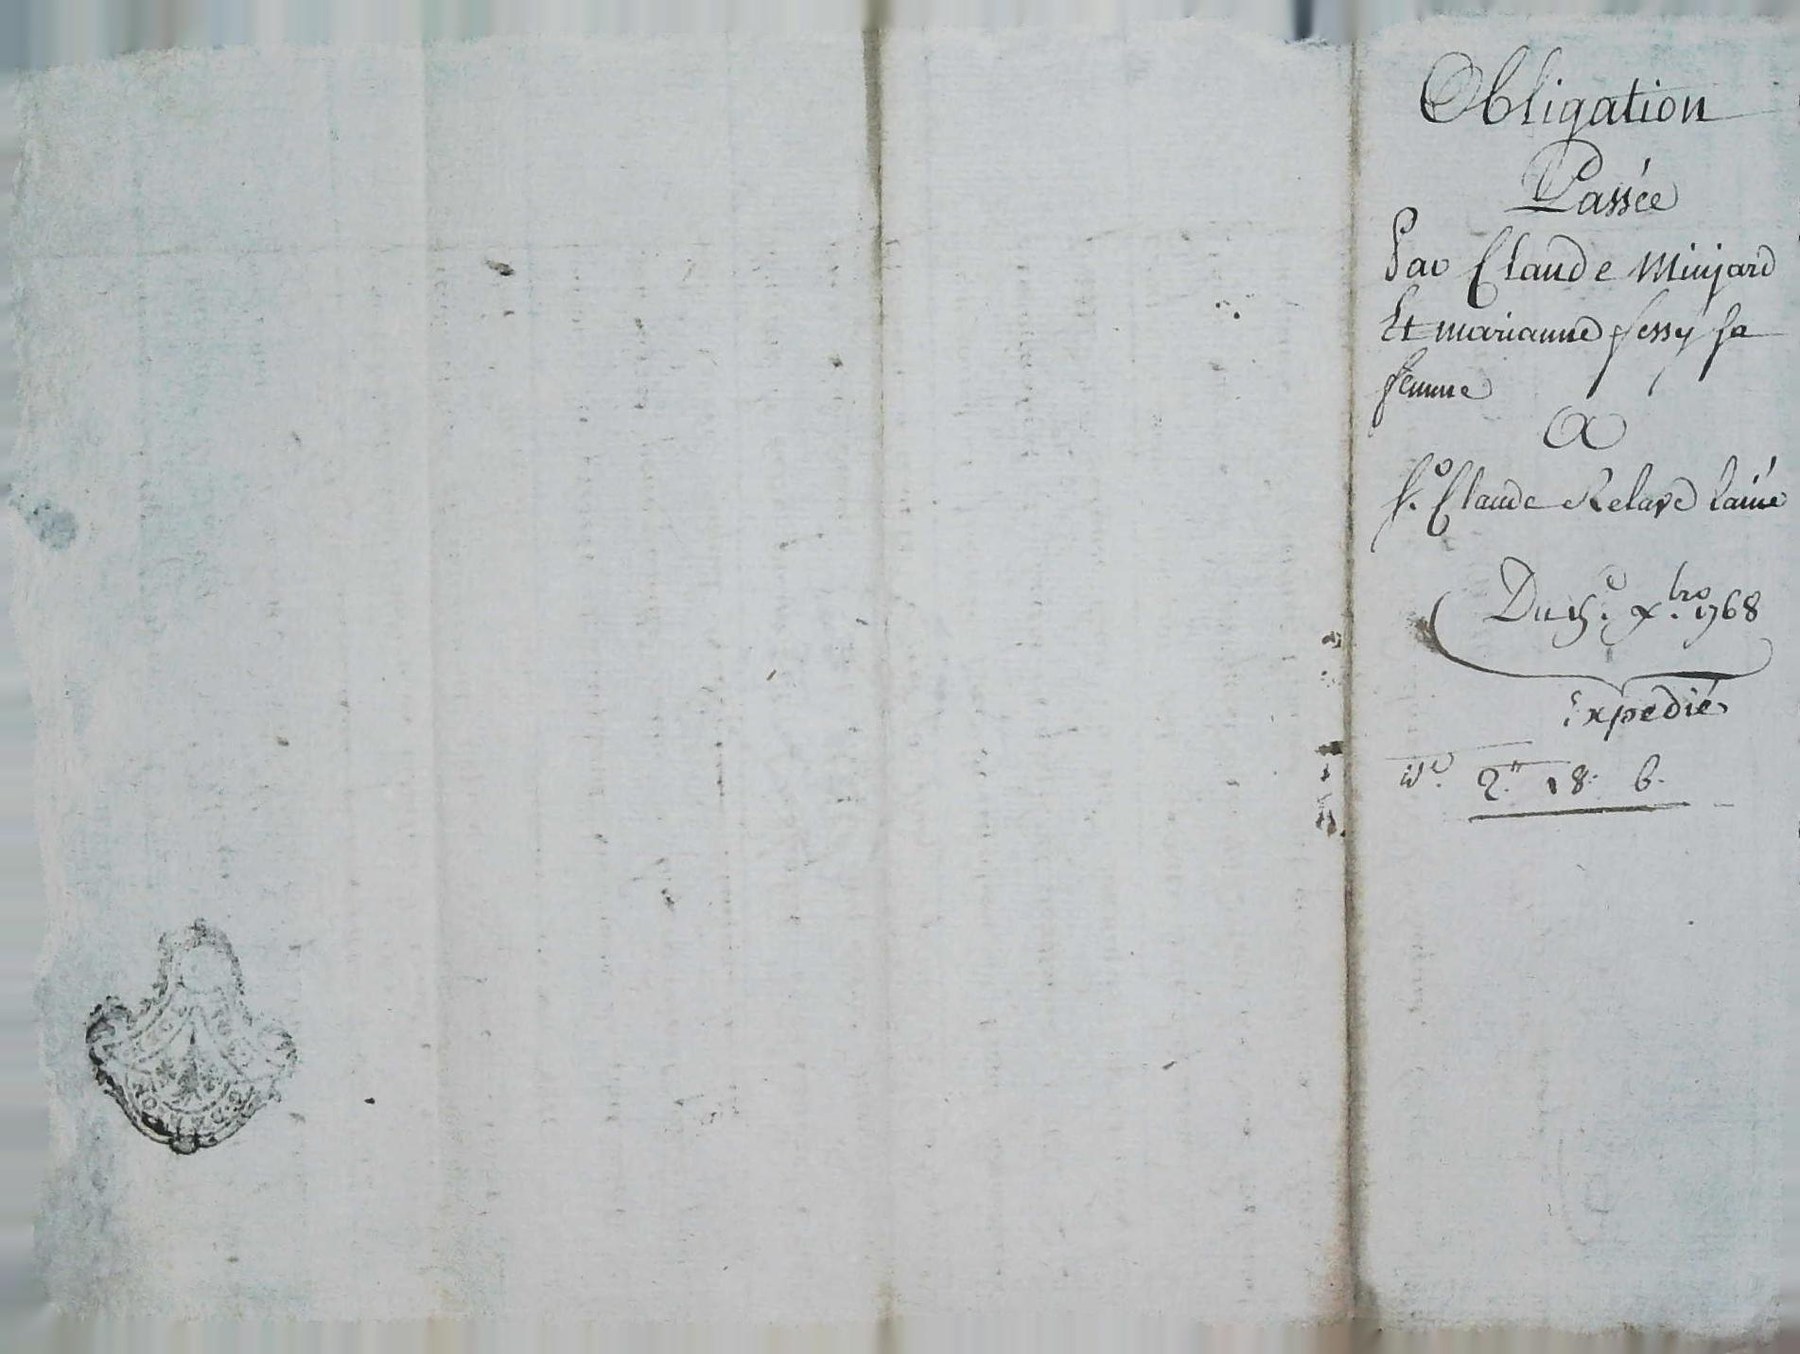 Obligation
Passée
Par Claude Minjard
Et marianne fessy sa
femme
A
Sr. Claude Relave lainé
Du 15e. xbre. 1768
Expedié
2ᵗᵗ 18. 6.